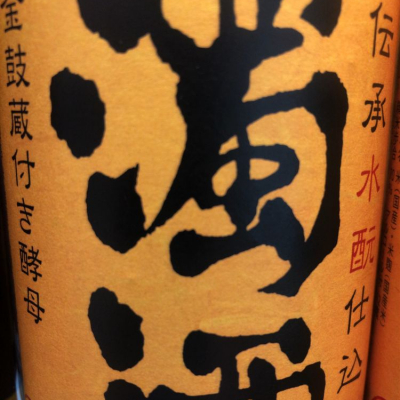 伝承水酛仕込
濁酒
金鼓蔵付き酵母